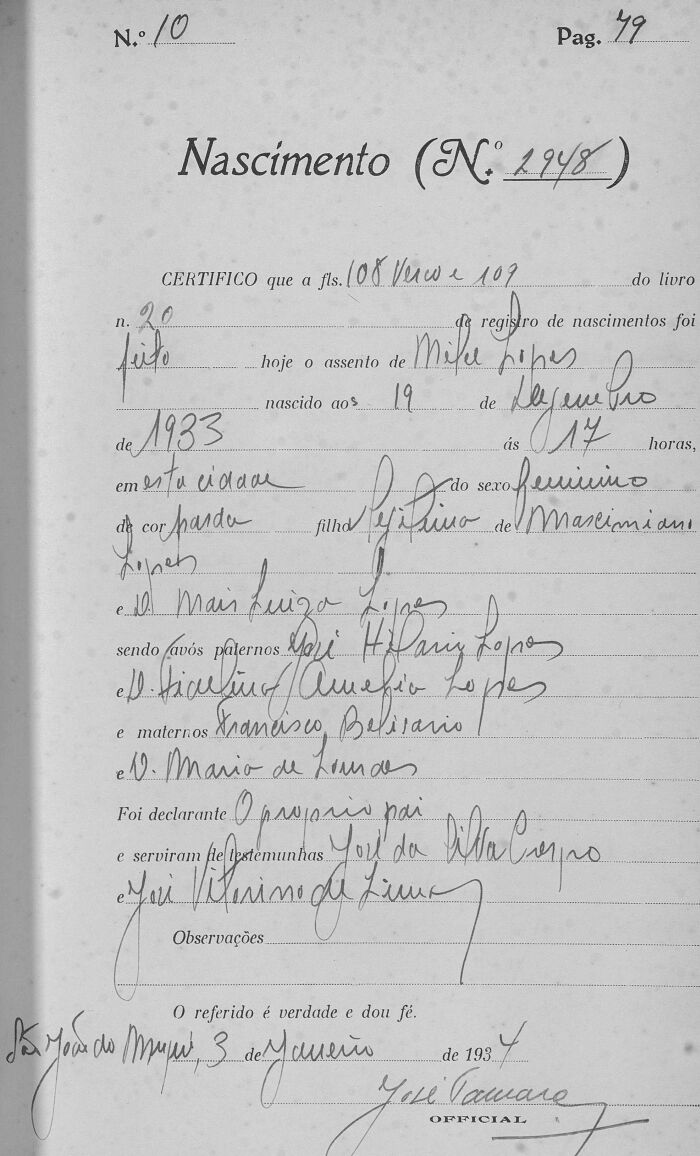 N.º 10 Pag. 79
Nascimento (N.º 2948)
CERTIFICO que a fls. 108 Verso e 109 do livro
n. 20 de registro de nascimentos foi
feito hoje o assento de Lopes
nascido aos 19 de Dezembro
de 1933 ás 17 horas,
em esta cidade do sexo feminino
de cor parda filha legitima de Mascimiano
Lopes
e D. Luiza Lopes
sendo avós paternos José Hilario Lopes
e D. Amelia Lopes
e maternos Francisco Belisario
e D. Maria de Lourdes
Foi declarante O proprio pai
e serviram de testemunhas José da Silva Crespo
e José Vitorino de Lima
Observações
O referido é verdade e dou fé.
São João do Muqui, 3 de Janeiro de 1934
José
OFFICIAL